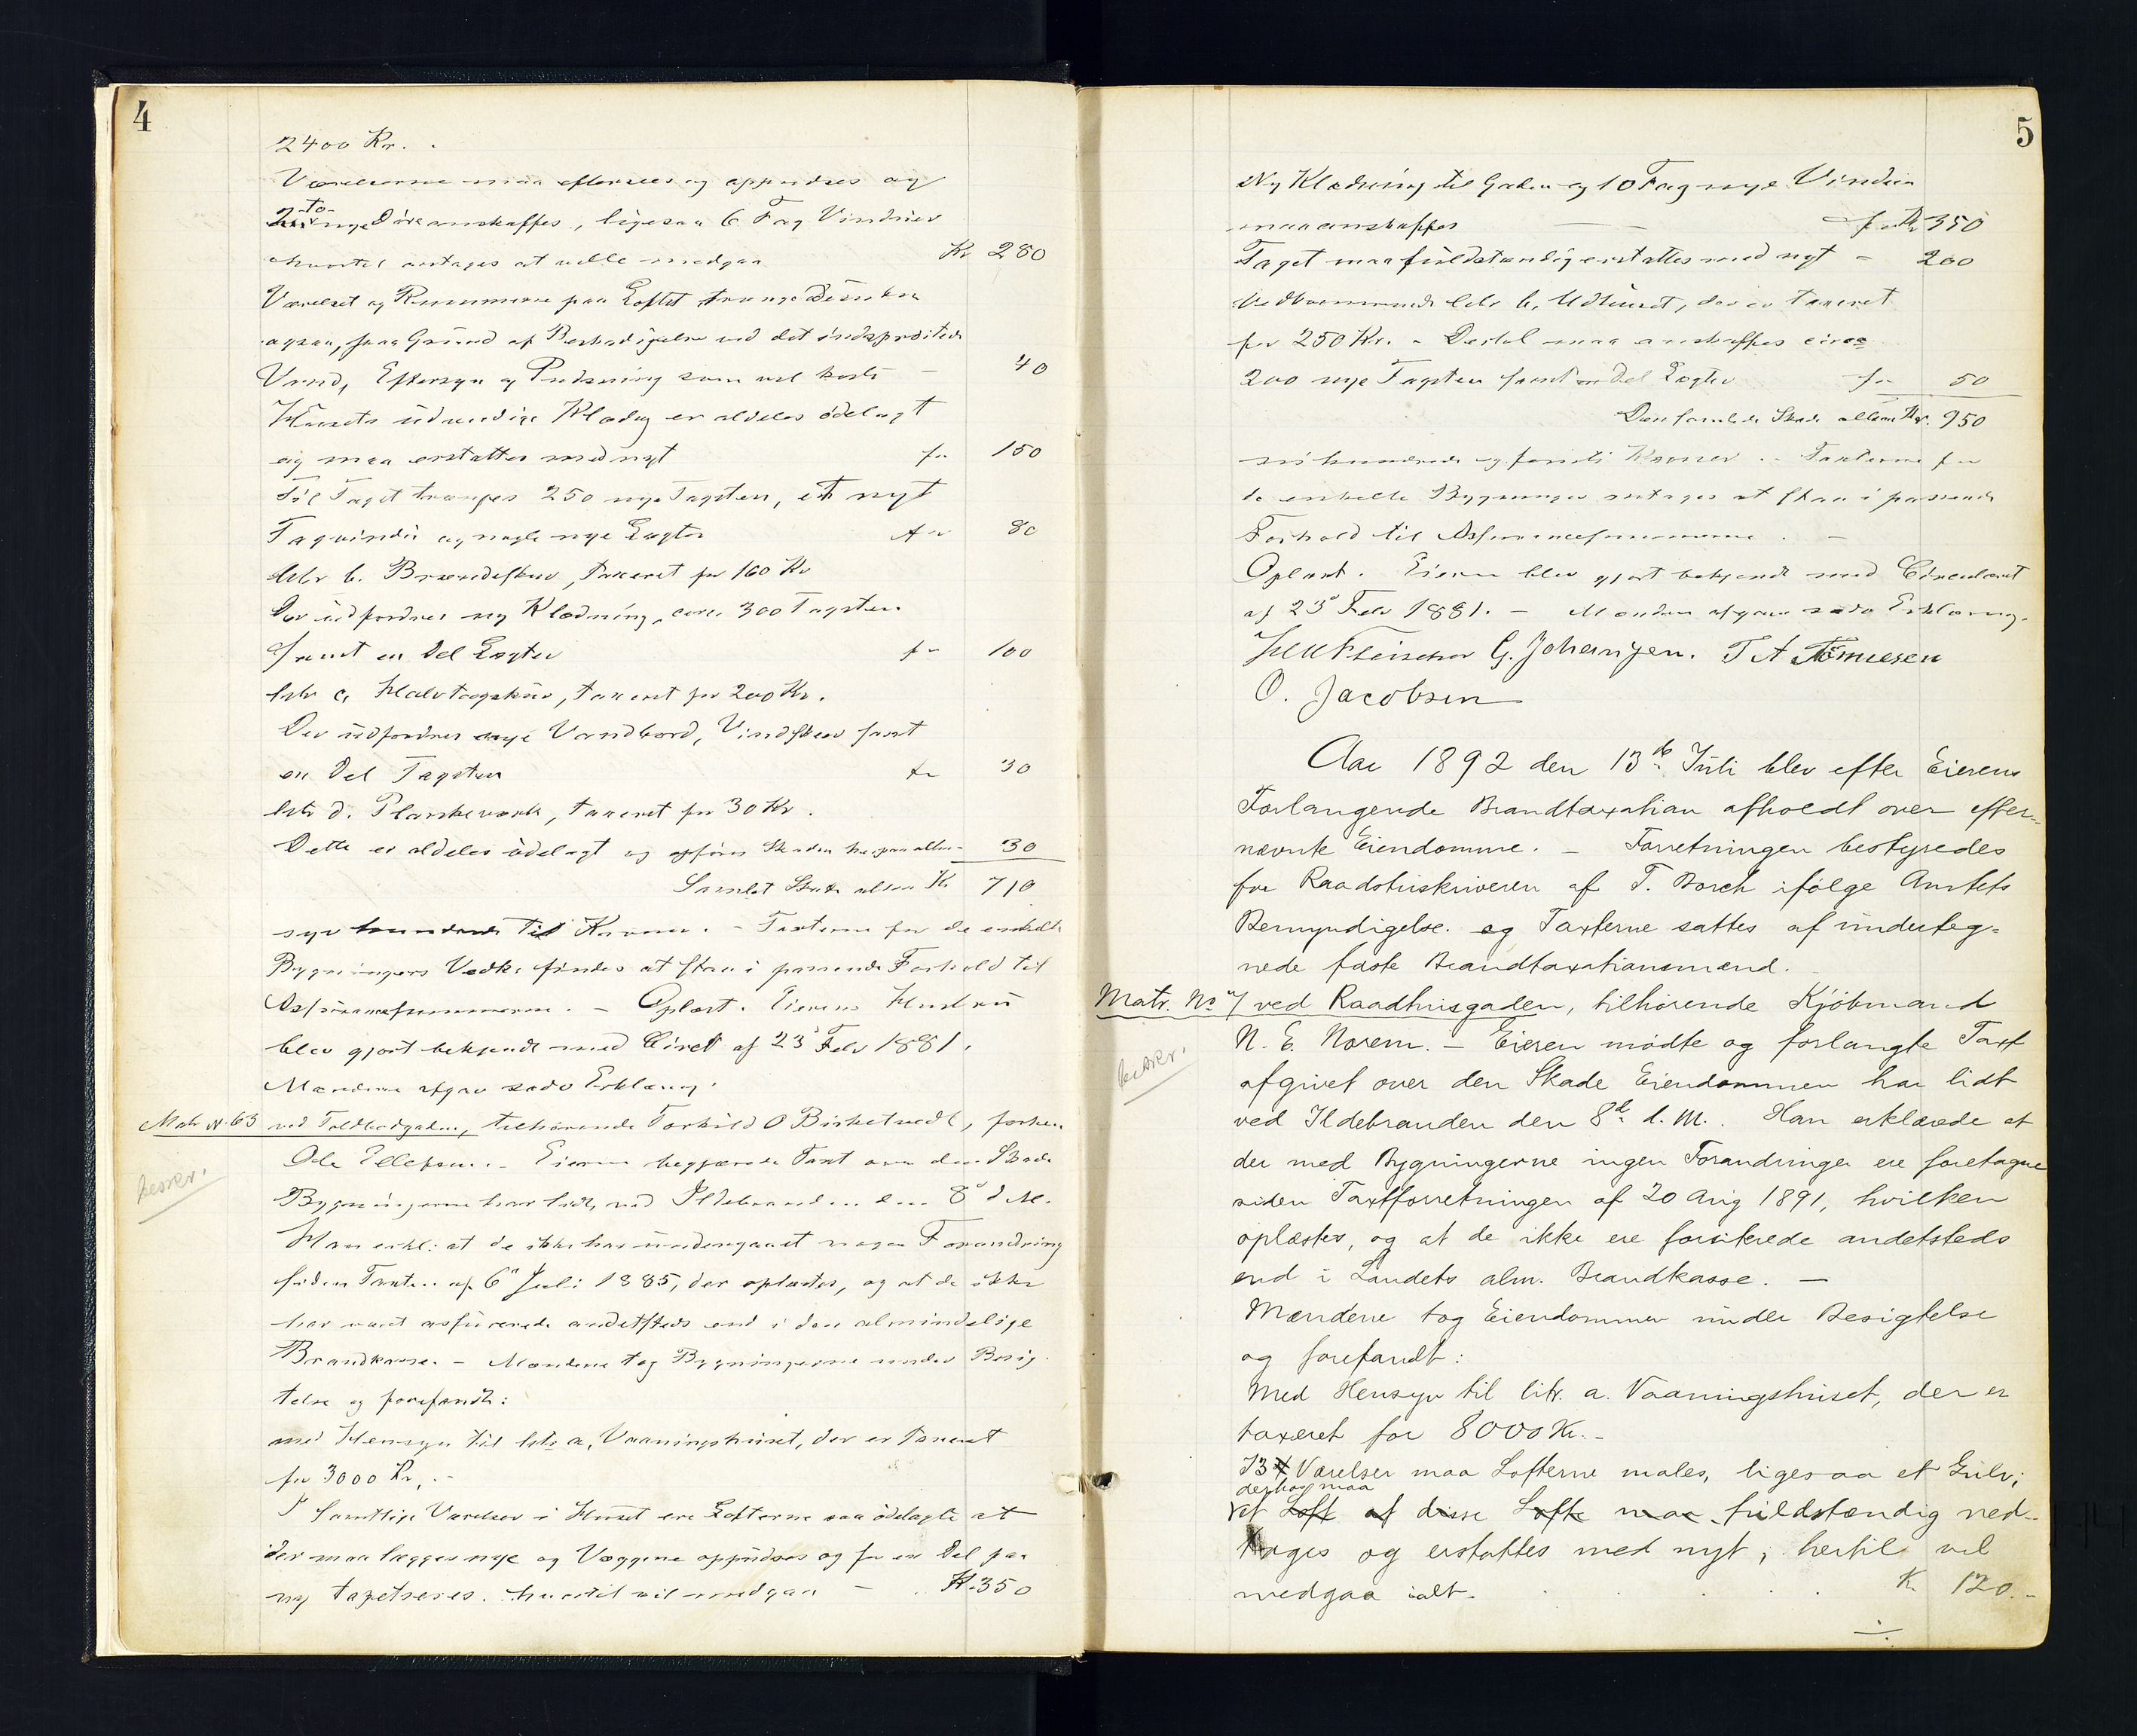 4
2400 Kr. .
Værelserne maa eftersees og oppudses og
2 to nye Döre anskaffes, ligesaa 6 Fag Vinduer
hvortil antages at ville medgaa Kr 280
Værelset og Rummene paa Loftet trænge desuden
ogsaa, paa Grund af Beskadigelse ved det indspröitede
Vand, Eftersyn og Pudsning som vil koste - 40
Husets udvendige Klædng er aldeles ödelagt
og maa erstattes med nyt for 150
Til Taget trænges 250 nye Tagsten, et nyt
Tagvindu og nogle nye Lægter for 80
litr b. Brændeskur, taxeret for 160 Kr
Der udfordres ny Klædning, circa 300 Tagsten
samt en Del Lægter for 100
litr c, Halvtagskur, taxeret for 200 Kr.
Der udfordres nye Vandbord, Vindskeer samt
en Del Tagsten for 30
litr d. Plankeværk, taxeret for 30 Kr.
Dette er aldeles ödelagt og Skaden 30
Samlet Skade altsaa Kr 710
syv hundrede ti Kroner. - Taxterne for de enkelte
Bygningers Vedk. findes at staa i passende Forhold til
Assurancesummerne. - Oplæst. Eierens Hustru
blev gjort bekjendt med Circt af 23 Febr 1881.
Mændene afgav sædv Erklæng.
Matr N. 63 ved Toldbodgaden, tilhørende Torkild O Birketvedt, forhen
Ole Ellefsen. - Eieren begjærede Taxt over den Skade
besver.
Bygningerne har lidt ved Ildebranden den 8 d M.
Han erkl: at de ikke har undergaaet nogen Forandring
siden Taxten af 6 Juli 1885, der oplæstes, og at de ikke
har været assurerede andetsteds end i den almindelige
Brandkasse. - Mændene tog Bygningerne under Besig
telse og forefandt:
med Hensyn til litr a, Vaaningshuset, der er taxeret
for 3000 Kr, -
I samtlige Værelser i Huset ere Lofterne saa ödelagte at
der maa lægges nye og Væggene oppudses og for en Del paa
ny tapetseres. hvortil vil medgaa - Kr 350
5
Ny Klædning til Gaden og 10 Fag nye Vinduer
maa anskaffes for Kr 350
Taget maa fuldstændig erstattes med nyt - 200
Vedkommende litr b, Udhuset, der er taxeret
for 250 Kr. - Dertil maa anskaffes circa
200 nye Tagsten samt en Del Lægter for 50
Den samlede Skade altsaa Kr. 950
ni hundrede og femti Kroner. - Taxterne for
de enkelte Bygninger antages at staa i passende
Forhold til Assurancesummerne. -
Oplæst. Eieren blev gjort bekjendt med Circulæret
af 23 Febr 1881. - Mændene afgave sædv Erklæring.
G. Johansen. T A Tönnesen
O. Jacobsen
Aar 1892 den 13de Juli blev efter Eierens
Forlangende Brandtaxation afholdt over efter-
nævnte Eiendomme. - Forretningen bestyredes
for Raadstuskriveren af T. Borch ifølge Amtets
Bemyndigelse. og Taxterne sattes af underteg-
nede faste Brandtaxationsmænd.
Matr. No 7 ved Raadhusgaden, tilhørende Kjöbmand
N. E. Norem. - Eieren mödte og forlangte Taxt
besver.
afgivet over den Skade Eiendommen har lidt
ved Ildebranden den 8de d. M. . Han erklærede at
der med Bygningerne ingen Forandringer ere foretagne
siden Taxtforretningen af 20 Aug 1891, hvilken
oplæstes, og at de ikke ere forsikrede andetsteds
end i Landets alm. Brandkasse. -
Mændene tog Eiendommen under Besigtelse
og forefandt:
Med Hensyn til litr. a. Vaaningshuset, der er
taxeret for 8000 Kr. -
I 3 Værelser maa Lofterne males, ligesaa et Gulv;
derhos maa
et Loft af disse Lofte maa fuldstændig ned-
tages og erstattes med nyt; hertil vil
medgaa ialt. Kr 120. -